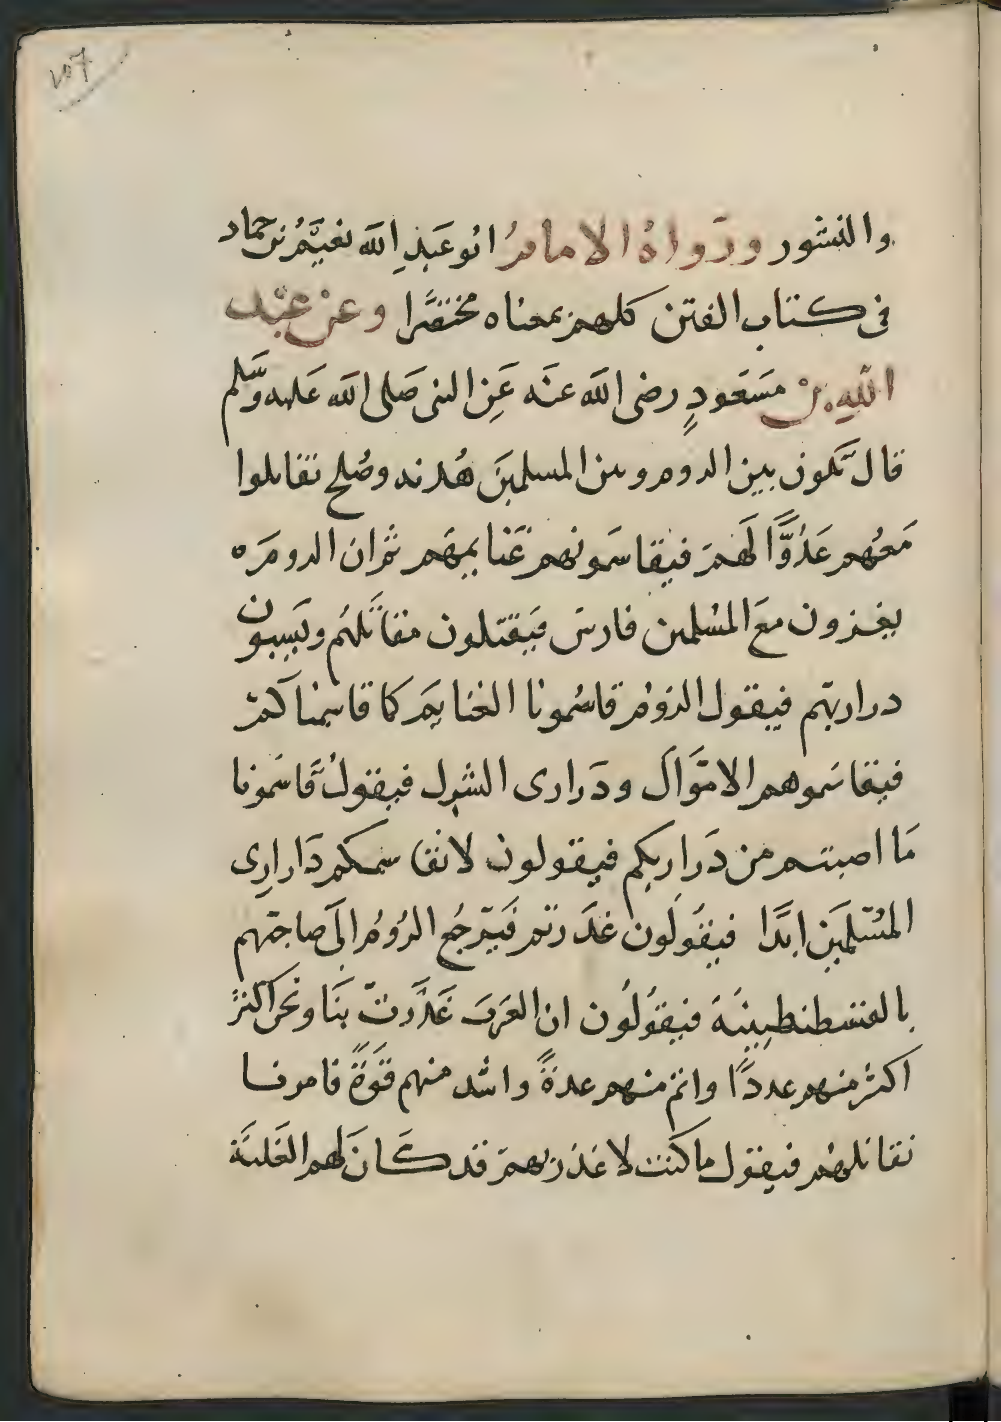 ١٥٦
والنشور ورَواهُ الامامُ ابو عَبدِ الله نعَيْم بن حماد
فى كتاب الفتن كلهم بمعناه مختصَرًا وعن عبد
الله بن مسَعَودٍ رضى الله عنَه عَنِ النبى صَلى الله عَليه وسَّلم
قال تكون بين الروم وبين المسلمينَ هُدنه وصُلح نقاتلوا
مَعهُم عَدُوًّا لَهمَ فيقاسَمونهم غَنايمهَم ثم ان الرومَ ه
يغزون معَ المسْلمين فارسَ فيَقتلون مقاتَلهُم ويَسبون
دراريهم فيقول الرومُ قاسُمونا الغنايمَ كما قاسمناكمَ
فيقاسَموهم الامَوالَ ودَرارى الشرك فيقولُ قَاسَمونا
مَا اصبتم من دَراريكم فيقولون لا نقاسمكم دَارارِى
المسْلمَين ابدًا فيقَولُون غدَرتم فَيرَجعُ الرُومُ الىَ صاحبهم
بالقسَطنطِينيَة فيقوُلوُن ان العَربَ غَدَرتَ بَنا ونحن اكثرُ
اكثر منهم عددًا واتم منهم عدةً واشد منهم قوَةً فامرنا
نقاتلهُم فيقول ما كَنت لاغدر بهمَ قد كَانَ لهم الغَلبَة